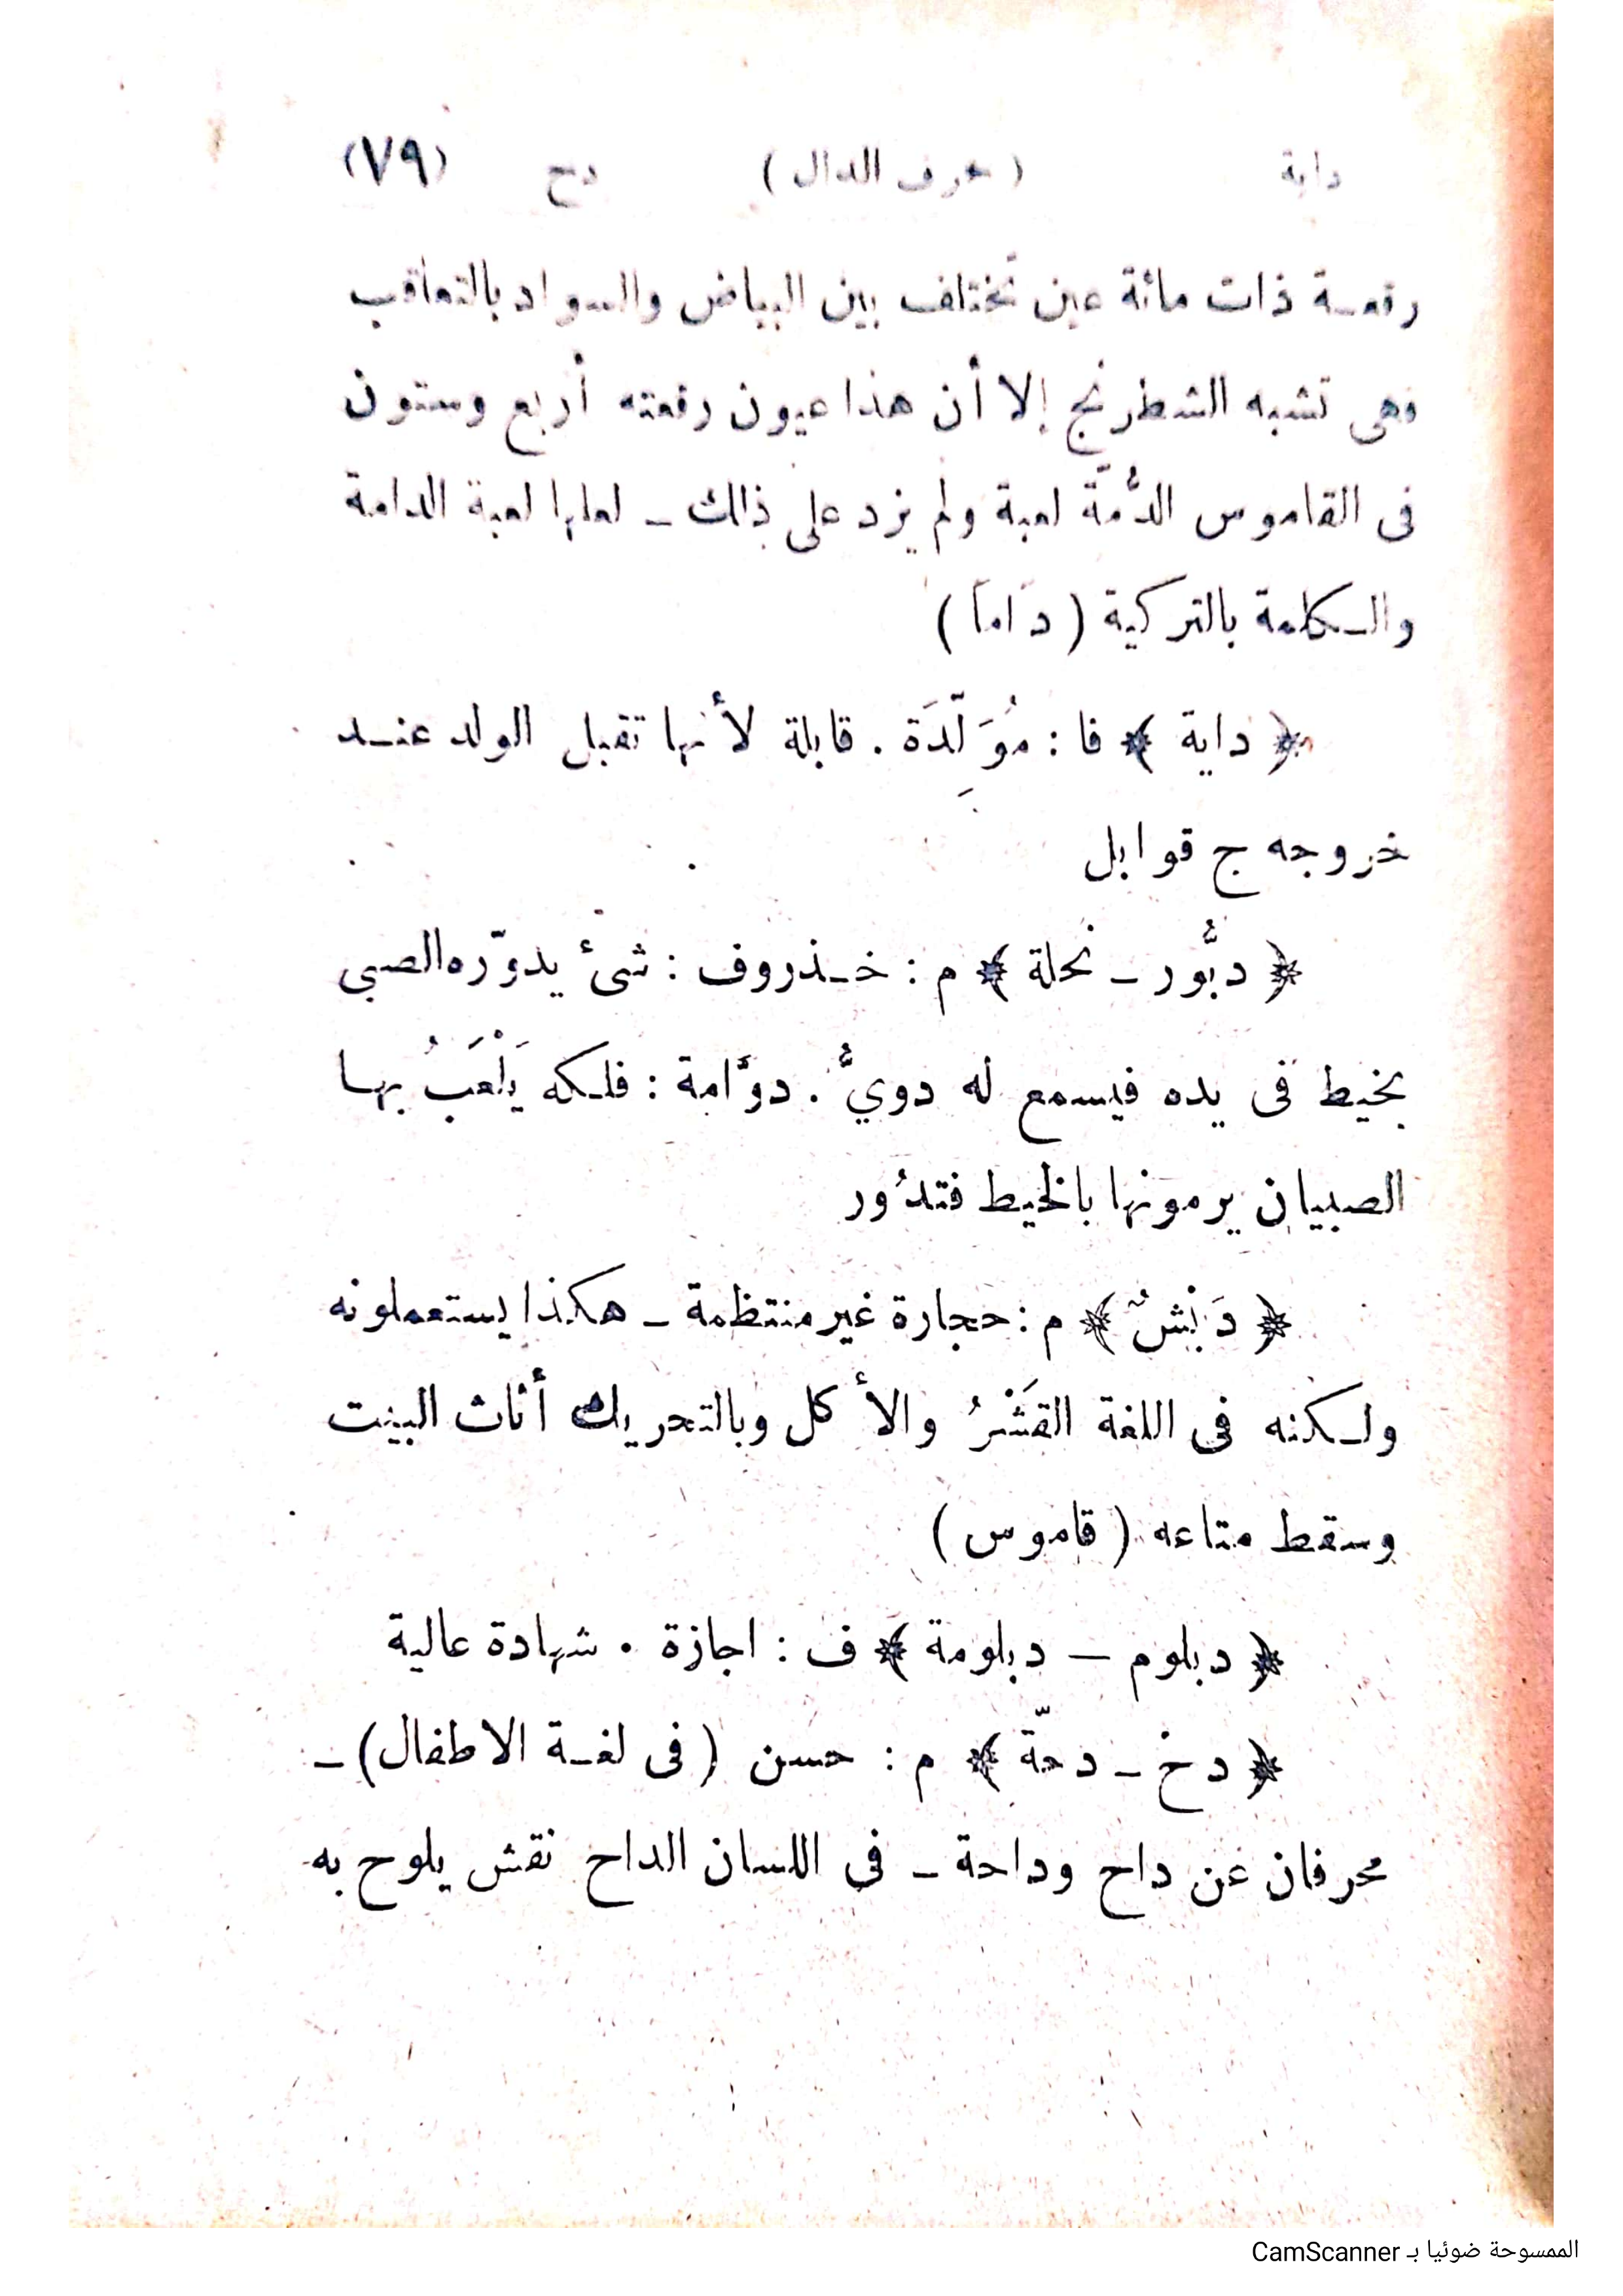 داية ( حرف الدال ) دح (٧٩)
رقعـة ذات مائة عين تختلف بين البياض والسواد بالتعاقب
وهى تشبه الشطرنج إلا أن هذا عيون رقعته أربع وستون
فى القاموس الدُّمّة لعبة ولم يزد على ذلك ــ لعلها لعبة الدامة
والـكلمة بالتركية ( دَامَا )
﴿ داية ﴾ فا : مُوَلِّدَة . قابلة لأنها تقبل الولد عنـد
خروجه ج قوابل
﴿ دبُّور ــ نحلة ﴾ م : خـذروف : شئ يدوّره الصبى
بخيط فى يده فيسمع له دويٌّ . دوَّامة : فلـكه يَلْعَبُ بهـا
الصبيان يرمونها بالخيط فتدُور
﴿ دَبْشٌ ﴾ م : حجارة غير منتظمة ــ هكذا يستعملونه
ولـكنه فى اللغة القَشْرُ والأكل وبالتحريك أثاث البيت
وسقط متاعه ( قاموس )
﴿ دبلوم ــ دبلومة ﴾ ف : اجازة . شهادة عالية
﴿ دخ ــ دحّة ﴾ م : حسن ( فى لغـة الاطفال ) ــ
محرفان عن داح وداحة ــ فى اللسان الداح نقش يلوح به
الممسوحة ضوئيا بـ CamScanner